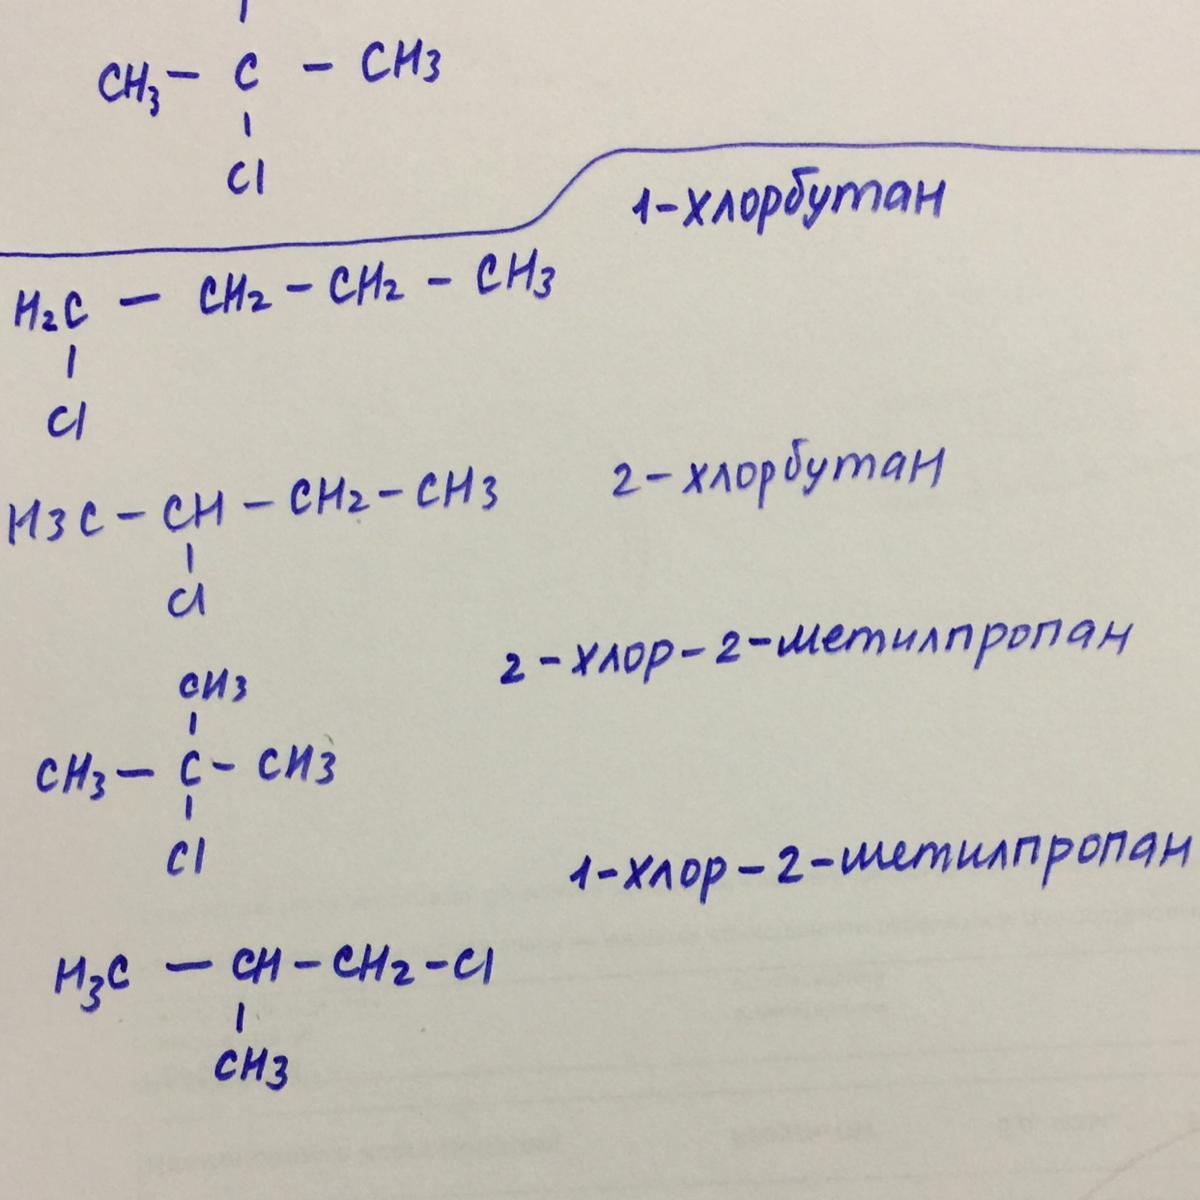 CH3 – C – CH3
Cl
1-хлорбутан
H2C – CH2 – CH2 – CH3
Cl
2-хлорбутан
H3C – CH – CH2 – CH3
Cl
2-хлор-2-метилпропан
CH3
CH3 – C – CH3
Cl
1-хлор-2-метилпропан
H3C – CH – CH2 – Cl
CH3